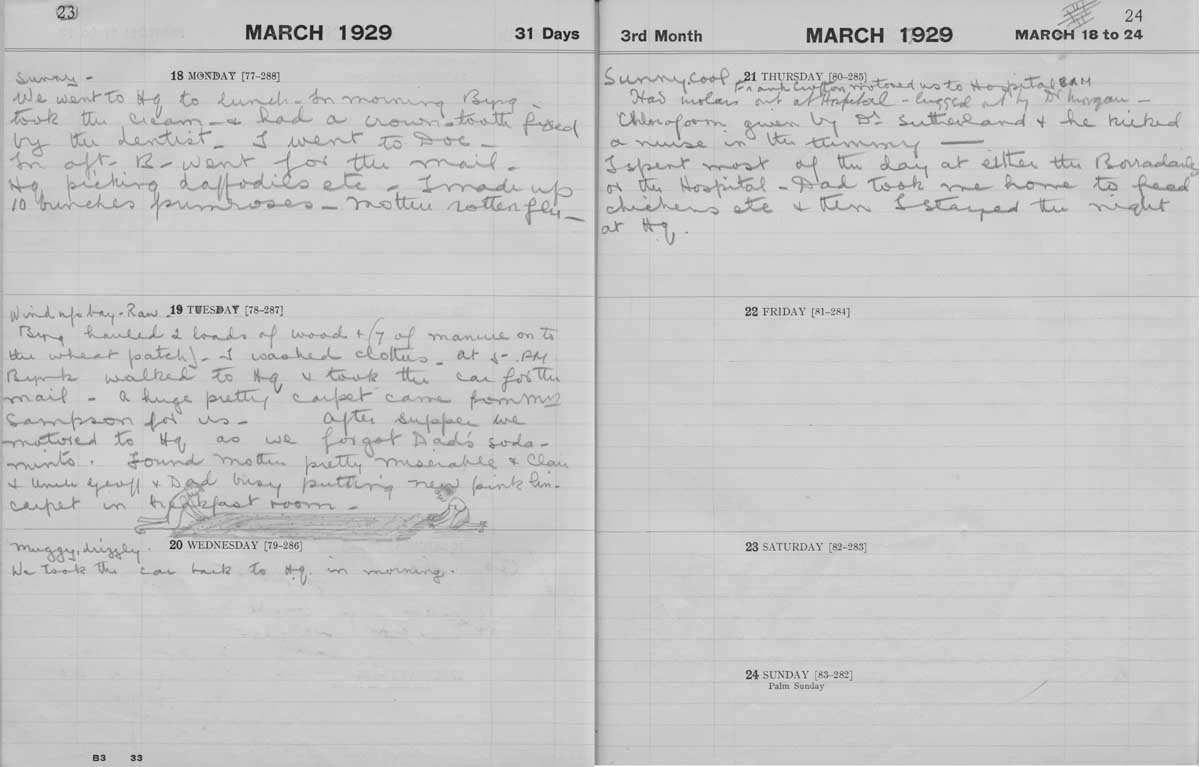 23
MARCH 1929 31 Days
Sunny - 18 MONDAY [77-288]
We went to Hq to lunch - In morning Byng -
took the cream - & had a crown-tooth fixed
by the dentist. I went to Doc -
In aft - B - went for the mail -
Hq picking daffodils etc - I made up
10 bunches primroses - Mother rotten fly -
Wind up bay - Raw 19 TUESDAY [78-287]
Byng hauled 2 loads of wood + (7 of manure on to
the wheat patch) - I washed clothes - at 5 - PM
walked to Hq & took the car for the
mail - A huge pretty carpet came from Mrs
Sampson for us - After supper we
motored to Hq as we forgot Dad's soda-
mints. Found Mother pretty miserable & Clair
& Uncle Geoff & Dad busy putting new pink lin-
carpet in breakfast room -
Muggy, drizzly. 20 WEDNESDAY [79-286]
We took the car back to Hq. in morning.
B3 33
24
3rd Month MARCH 1929 MARCH 18 to 24
Sunny, cool 21 THURSDAY [80-285]
Frank motored us to Hospital 8 AM
Had molars out at Hospital - lugged out by Dr Morgan -
Chloroform given by Dr Sutherland & he kicked
a nurse in the tummy -
I spent most of the day at either the Borradaile
or the Hospital - Dad took me home to feed
chickens etc & then I stayed the night
at Hq.
22 FRIDAY [81-284]
23 SATURDAY [82-283]
24 SUNDAY [83-282]
Palm Sunday